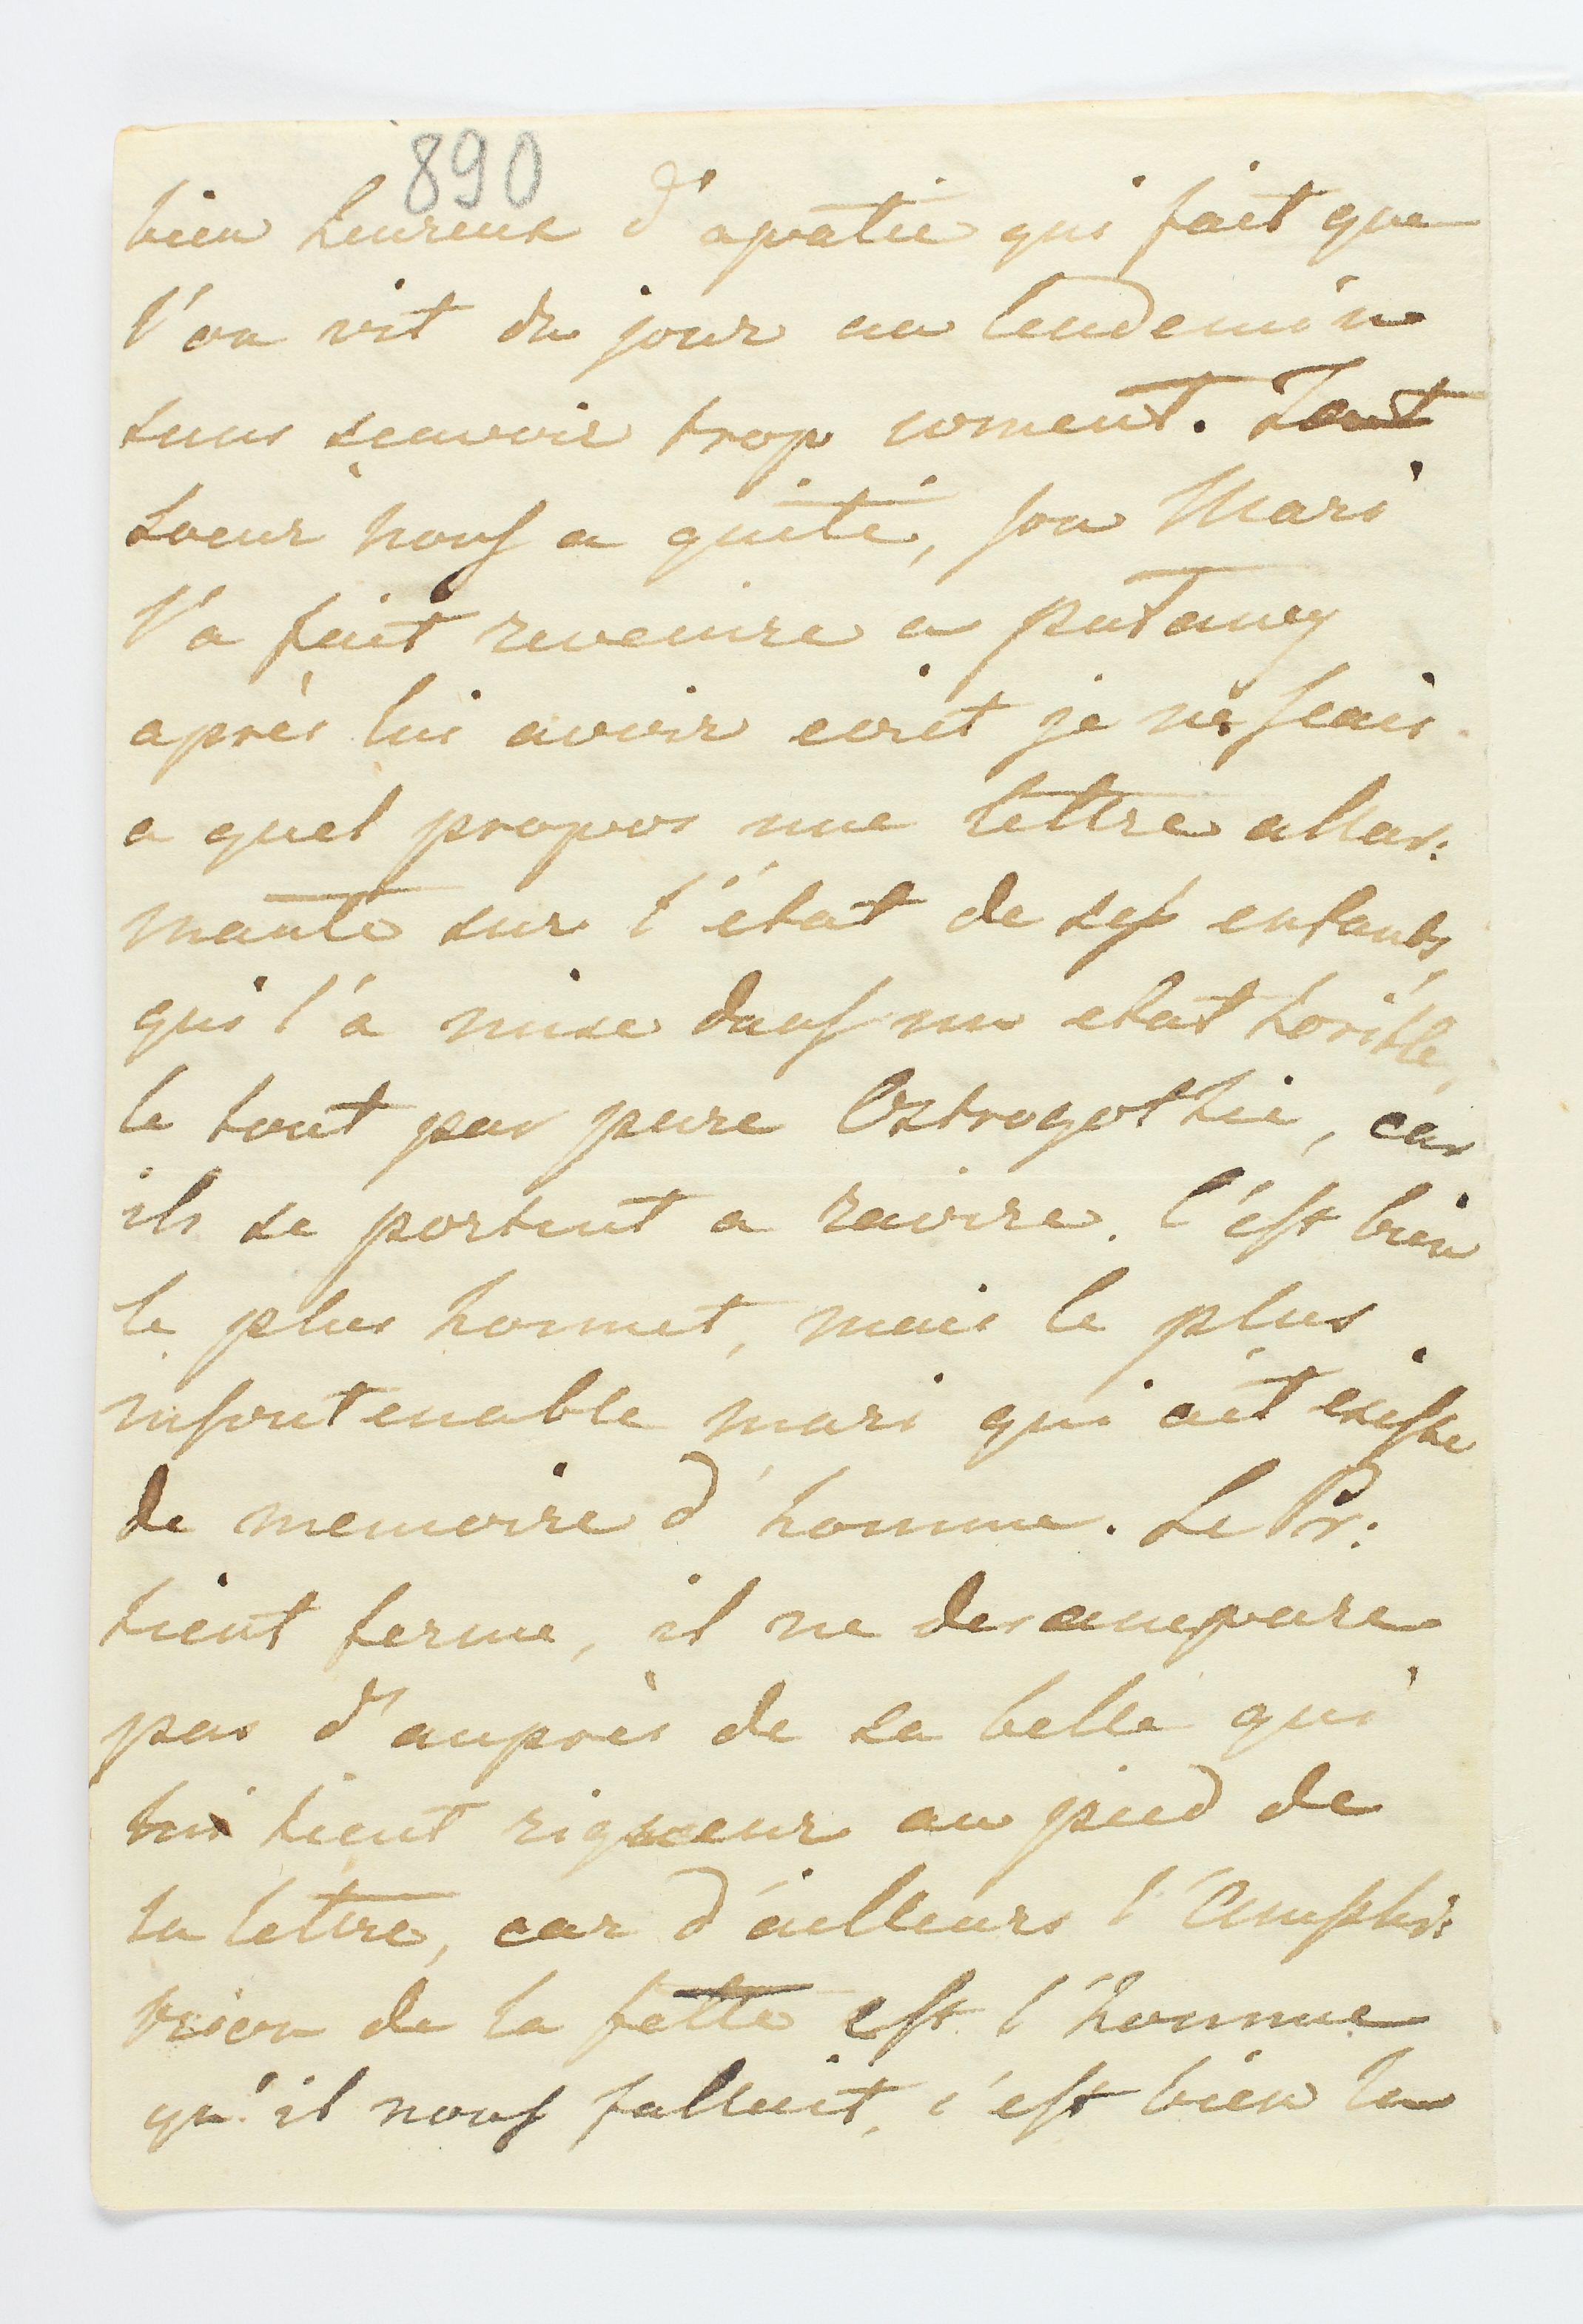 890
bien heureux d'apatie qui fait que
l'on vit du jour au lendemin
sans scavoir trop coment.
soeur nous a quité, son Mari
l'a fait revenire a
après lui avoir ecrit je ne scais
a quel propos une lettre allar:
mante sur l'état de ses enfants,
qui l'a mise dans un etat horible,
le tout par pure Ostrogothie, car
ils se portent a ravire. C'est bien
le plus honnet, mais le plus
insoutenable mari qui ait existe
de memoire d'homme. Le Pr:
tient ferme, il ne desampare
pas d'auprès de sa belle qui
lui tient rigueur au pied de
la lettre, car d'ailleurs l'Amphi:
trion de la fette est l'homme
qu'il nous falluit, c'est bien la